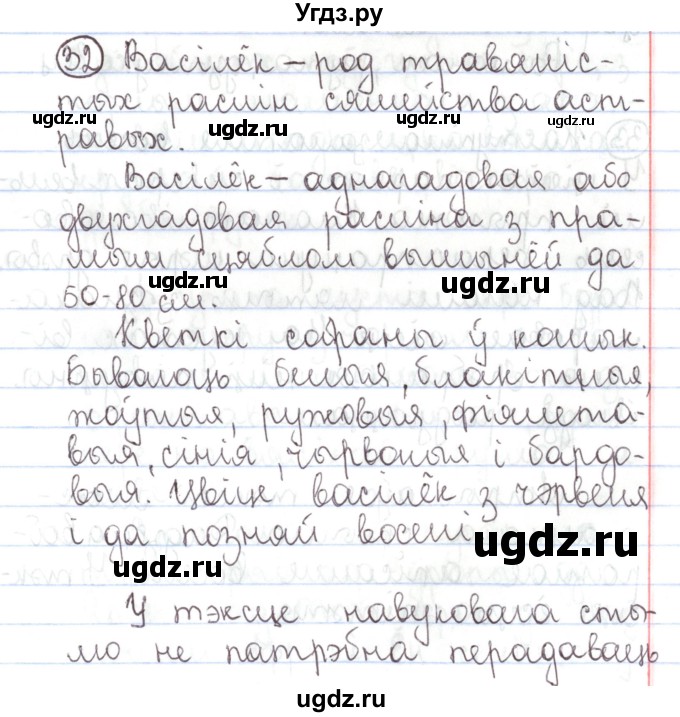 Угдз.ру
32 Васілёк – род травяніс-
тых раслін сямейства аст-
равых.
ugdz.ru ugdz.ru ugdz.ru
Васілёк – аднагадовая або
двухгадовая расліна з пра-
мым сцяблом вышынёй да
50-80 см.
ugdz.ru ugdz.ru
Кветкі сабраны ў кошык.
Бываюць белыя, блакітныя,
жоўтыя, ружовыя, фіялета-
выя, сінія, чырвоныя і бардо-
выя. Цвіце васілёк з чэрвеня
і да позняй восені.
ugdz.ru ugdz.ru
У тэксце навуковага сты-
лю не патрэбна перадаваць
ugdz.ru